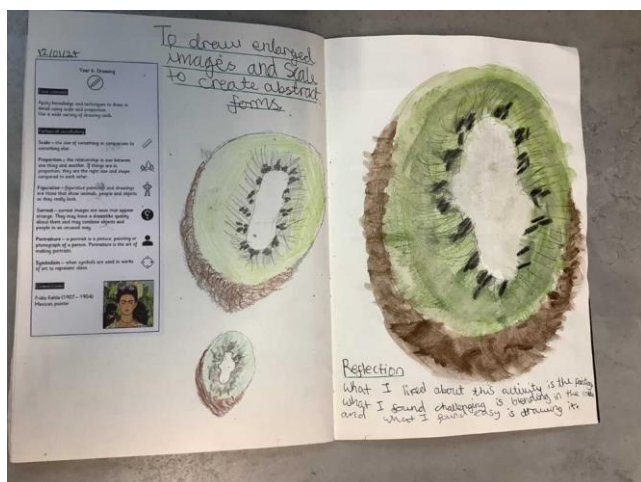 12/01/24
To draw enlarged
images and scale
to create abstract
forms.
Year 6: Drawing
Apply knowledge and techniques to draw in
detail using scale and proportion.
Use a wide variety of drawing
Scale – the size of something in comparison to
something else
Proportion – the relationship in size between
one thing and another. If things are in
proportion, they are the right size and shape
compared to each other.
Figurative – figurative paintings and drawings
are those that show animals, people and objects
as they really look.
Surreal – surreal images are ones that appear
strange. They may have a dreamlike quality
about them and may combine objects and
people in an unusual way.
Portraiture – a portrait is a picture, painting or
photograph of a person. Portraiture is the art of
making portraits.
Symbolism – when symbols are used in works
of art to represent ideas
Frida Kahlo (1907 – 1954)
Mexican painter
Reflection
What I liked about this activity is the
what I found challenging is blending in the
and what I found easy is drawing it.